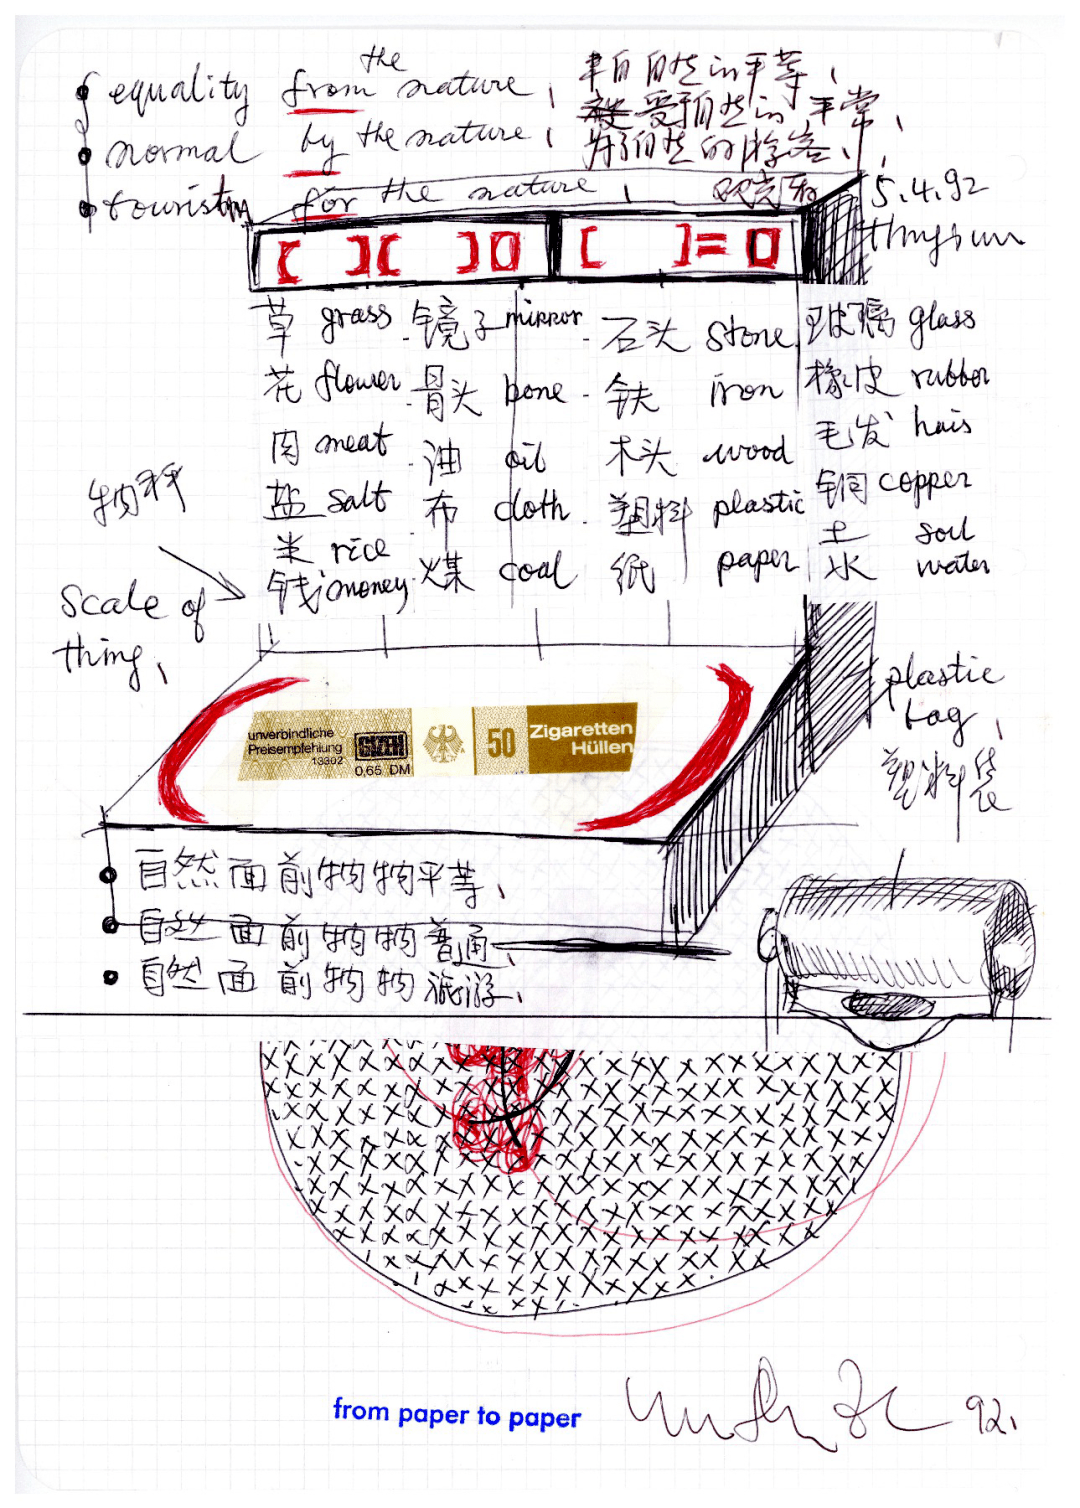 equality from the nature, 来自自然的平等、
normal by the nature, 受自然的平常、
tourism for the nature, 为了自然的游客、
5.4.92
[ ][ ]0 [ ]=0
草 grass 镜子 mirror 石头 stone 玻璃 glass
花 flower 骨头 bone 铁 iron 橡皮 rubber
肉 meat 油 oil 木头 wood 毛发 hais
盐 salt 布 cloth 塑料 plastic 铜 copper
米 rice 煤 coal 纸 paper 土 soil
钱 money 水 water
物秤
Scale of
thing,
plastic
bag,
塑料袋
unverbindliche
Preisempfehlung
13302
GIZEH
0,65 DM
50
Zigaretten
Hüllen
自然面前物物平等、
自然面前物物普通、
自然面前物物旅游、
from paper to paper
92.